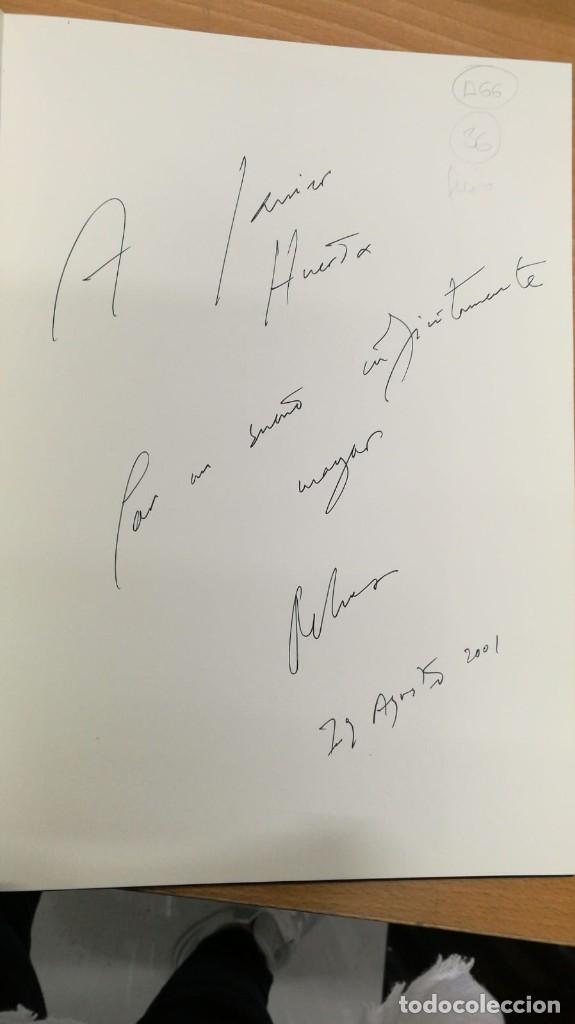 A66
36
A Javier
Huerta
Por un sueño infinitamente
mayor
29 Agosto 2001
todocoleccion